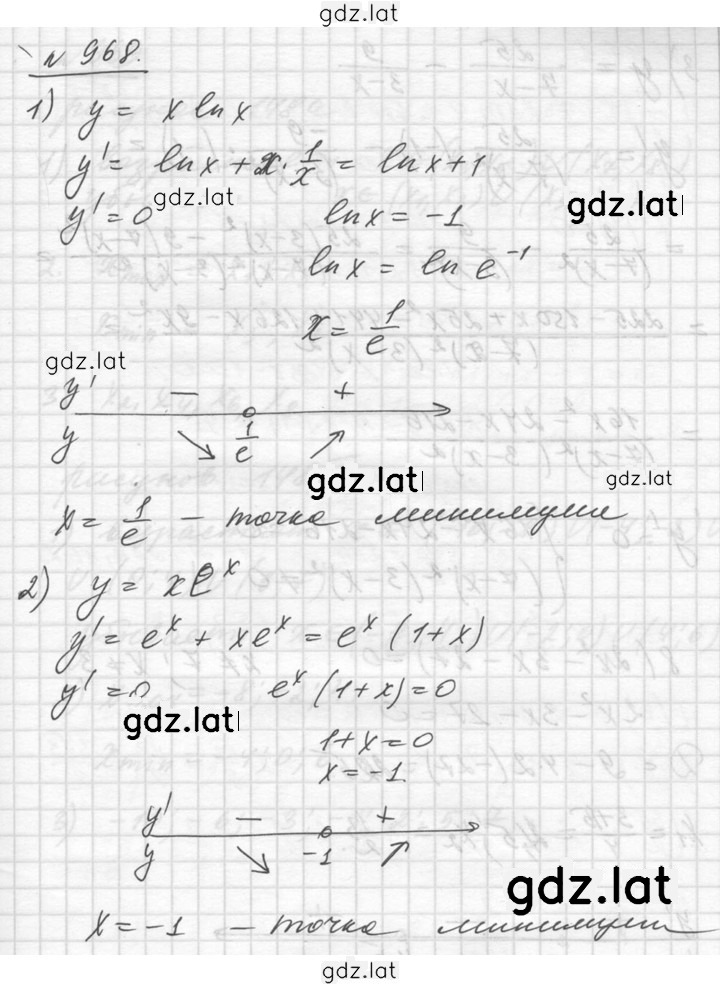 gdz.lat
N 968.
1) y = x ln x
y' = ln x + x · 1/x = ln x + 1
gdz.lat
gdz.lat
y' = 0 ln x = -1
ln x = ln e⁻¹
x = 1/e
gdz.lat
y' − +
y 1/e
gdz.lat
gdz.lat
x = 1/e − точка минимума
2) y = xeˣ
y' = eˣ + xeˣ = eˣ (1+x)
y' = 0 eˣ (1+x) = 0
gdz.lat
1+x=0
x = -1.
y' − +
y -1
gdz.lat
x = -1 − точка минимума
gdz.lat